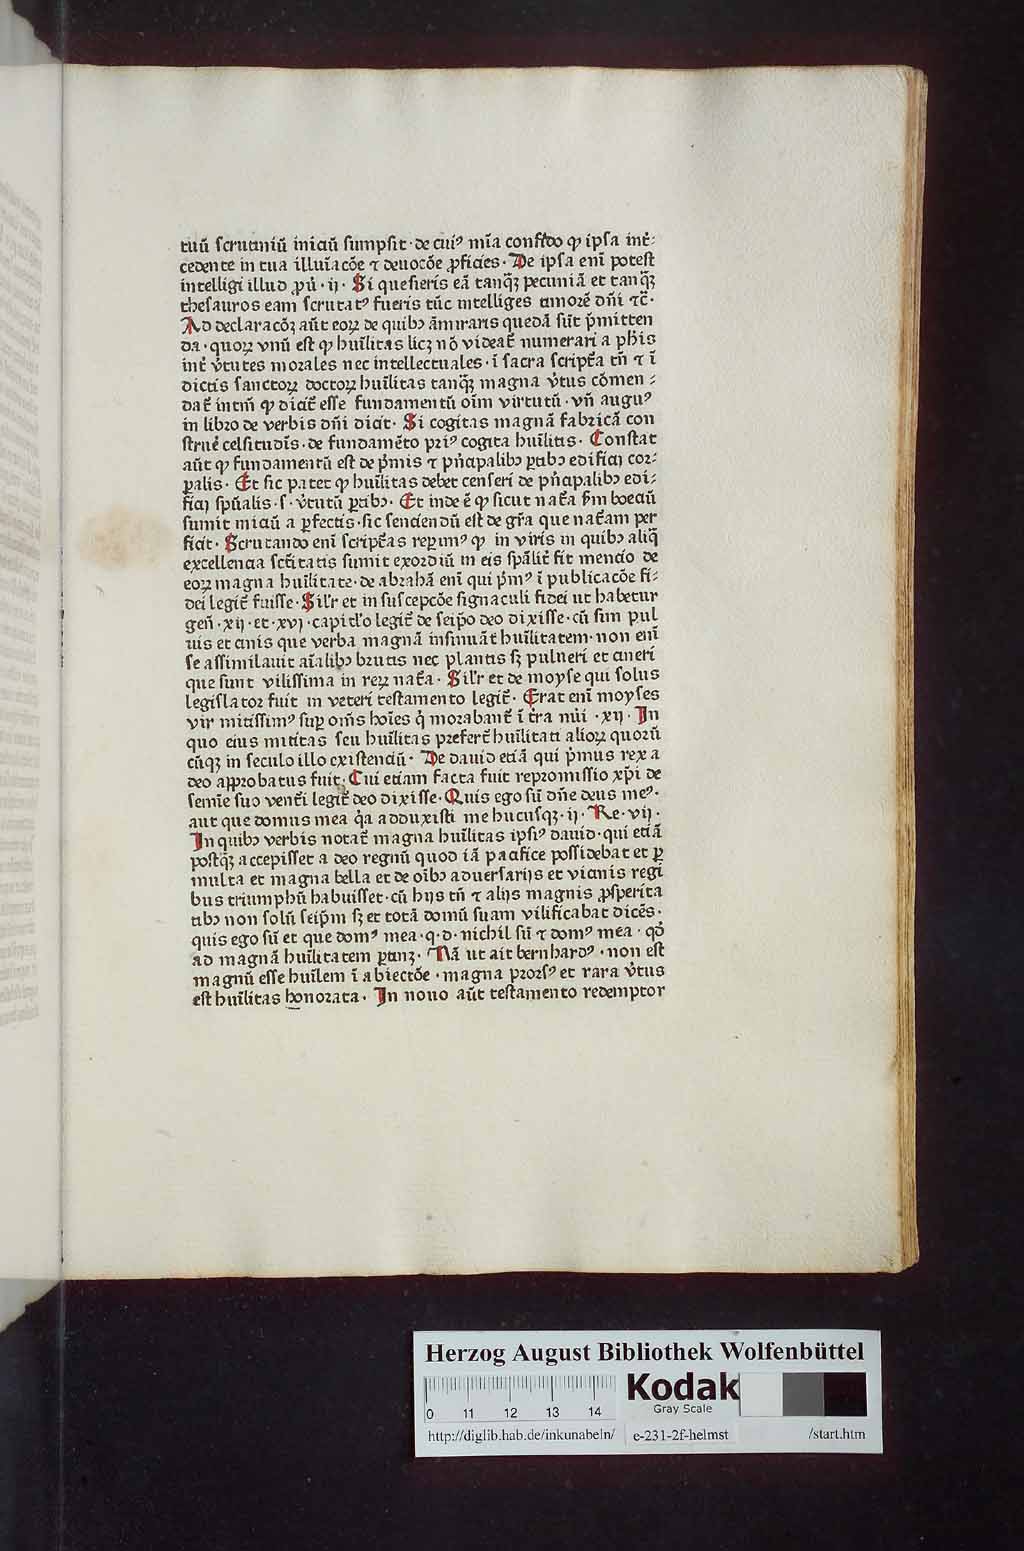 tuū scrutiniū iniciū sumpsit · de cui⁹ mīa confido ꝙ ipsa int̄ː
cedente in tua illuīacōe ⁊ deuocōe ꝓficies · De ipsa enī potest
intelligi illud ꝓu̇ · ij · Si quesieris eā tanqȝ̄ pecuniā et tanqȝ̄
thesauros eam scrutat⁹ fueris tūc intelliges timorē dn̄i ⁊c̄ ·
Ad declaracōȝ aūt eoꝝ de quibꝰ āmiraris quedā sūt p̄mitten
da · quoꝝ vnū est ꝙ huīlitas licȝ nō videat̄ numerari a ph̄is
int̄ v̄tutes morales nec intellectuales · ī sacra script̄a tn̄ ⁊ ī
dictis sanctoꝝ doctoꝝ huīlitas tanqȝ̄ magna v̄tus cōmenː
dat̄ intm̄ ꝙ dicit̄ esse fundamentū oīm virtutū · vn̄ augu⁹
in libro de verbis dn̄i dicit · Si cogitas magnā fabricā con
struē celsitudīs · de fundamēto pri⁹ cogita huīlitis · Constat
aūt ꝙ fundamentū est de p̄mis ⁊ pn̄cipalibꝰ ꝑtibꝰ edificij corː
ꝑalis · Et sic patet ꝙ huīlitas debet censeri de pn̄cipalibꝰ ediː
ficij spūalis · s · v̄tutū ꝑtibꝰ · Et inde ē ꝙ sicut nat̄a ẜm boeciū
sumit iniciū a ꝑfectis · sic senciendū est de gr̄a que nat̄am per
ficit · Scrutando enī script̄as reperim⁹ ꝙ in viris in quibꝰ aliq̄
excellencia sct̄itatis sumit exordiū in eis spāliṫ fit mencio de
eoꝝ magna huīlitate · de abrahā enī qui p̄m⁹ ī publicacōe fiː
dei legit̄ fuisse · Sil̄r et in suscepcōe signaculi fidei ut habetur
gen̄ · xij · et · xvj · capitl̄o legit̄ de seip̄o deo dixisse · cū sim pul
uis et cinis que verba magnā insinuāt huīlitatem · non enī
se assimilauit aīalibꝰ brutis nec plantis sȝ pulueri et cineri
que sunt vilissima in reꝝ nat̄a · Sil̄r et de moyse qui solus
legislator fuit in veteri testamento legit̄ · Erat enī moyses
vir mitissim⁹ suꝑ om̄s hoīes q̄ morabant̄ ī t̄ra nūi · xij · In
quo eius mititas seu huīlitas prefert̄ huīlitati alioꝝ quorū
cūqȝ in seculo illo existenciū · De dauid etiā qui p̄mus rex a
deo approbatus fuit · Cui etiam facta fuit repromissio xp̄i de
semīe suo vent̄i legit̄ deo dixisse · Quis ego sū dn̄e deus me⁹ ·
aut que domus mea q̄a adduxisti me hucusqȝ · ij · Re · vij ·
In quibꝰ verbis notat̄ magna huīlitas ipsi⁹ dauid · qui etiā
postqȝ̄ accepisset a deo regnū quod iā pacifice possidebat et ꝑ
multa et magna bella et de oībꝰ aduersarijs et vicinis regi
bus triumphū habuisset · cū hijs tn̄ ⁊ alijs magnis ꝓsperita
tibꝰ non solū seip̄m sȝ et totā domū suam vilificabat dicēs ·
quis ego sū et que dom⁹ mea · q · d · nichil sū ⁊ dom⁹ mea · qd̄
ad magnā huīlitatem ꝑtinȝ · Nā ut ait bernhard⁹ · non est
magnū esse huīlem ī abiectōe · magna prors⁹ et rara v̄tus
est huīlitas honorata · In nouo aūt testamento redemptor
Herzog August Bibliothek Wolfenbüttel
Kodak
Gray Scale
0 11 12 13 14
http://diglib.hab.de/inkunabeln/ e-231-2f-helmst /start.htm